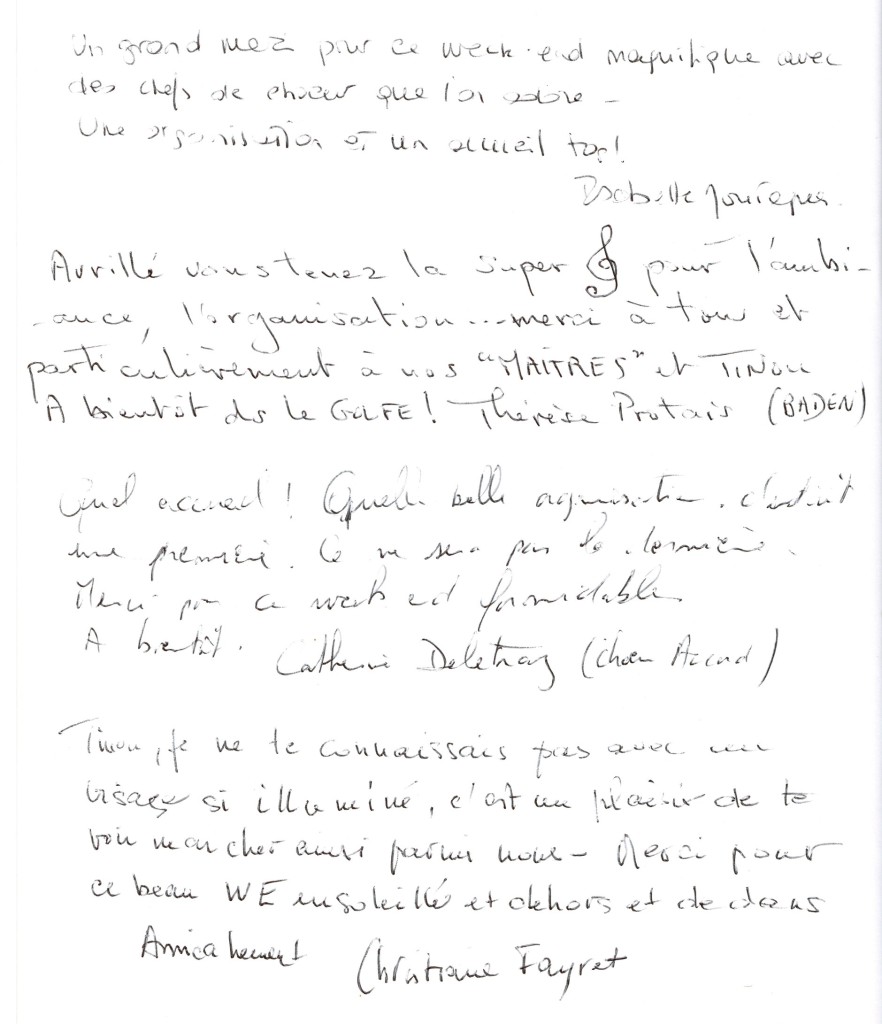 Un grand merci pour ce week-end magnifique avec
des chefs de choeur que l'on adore -
Une organisation et un accueil top!
Isabelle
Avrillé vous tenez la super pour l'ambi-
-ance, l'organisation...merci à tous et
particulièrement à nos "MAÎTRES" et TINOU
A bientôt ds le GOLFE! Thérèse Protais (BADEN)
Quel accueil! Quelle belle organisation. c'était
une première. Ce ne sera pas la dernière.
Merci pour ce week end formidable.
A bientôt. Catherine Deletraz (choeur Accord)
Tinou, je ne te connaissais pas avec un
visage si illuminé, c'est un plaisir de te
voir marcher ainsi parmi nous - Merci pour
ce beau WE ensoleillé et dehors et dedans
Amicalement Christiane Fayret